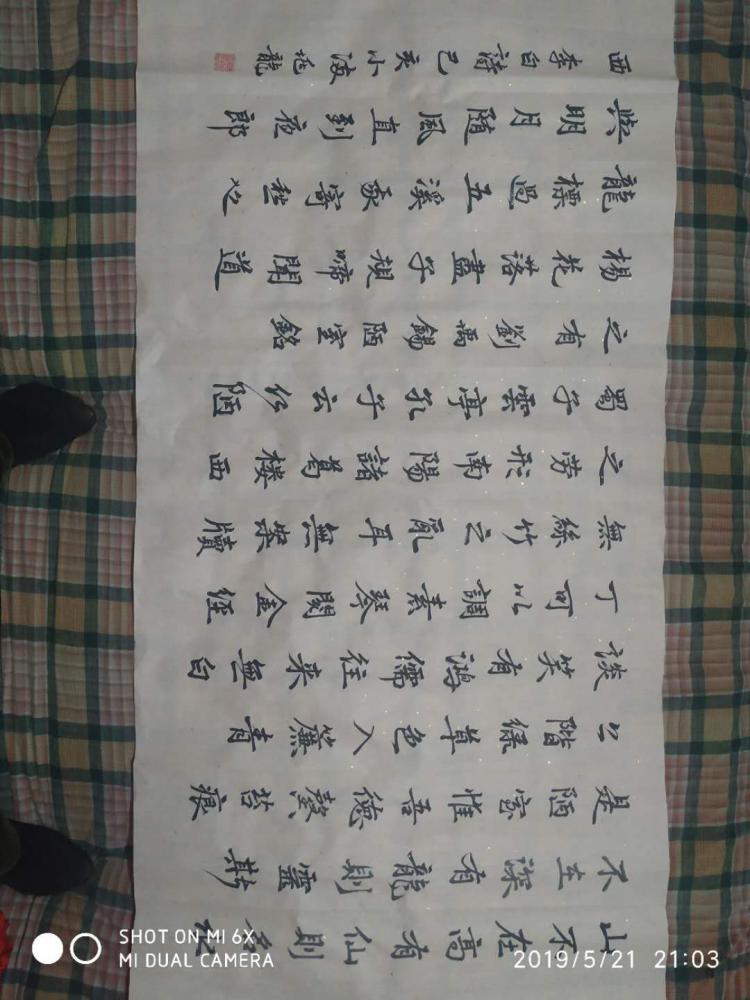 山不在高有仙則名水
不在深有龍則靈斯
是陋室惟吾德馨苔痕
上階綠草色入簾青
談笑有鴻儒往来無白
丁可以調素琴閱金經
無絲竹之亂耳無案牘
之勞形南陽諸葛樓西
蜀子雲亭孔子云何陋
之有劉禹錫陋室銘
楊花落盡子規啼聞道
龍標過五溪我寄愁心
與明月隨風直到夜郎
西李白詩己亥小满姚龍
SHOT ON MI 6X
MI DUAL CAMERA
2019/5/21 21:03